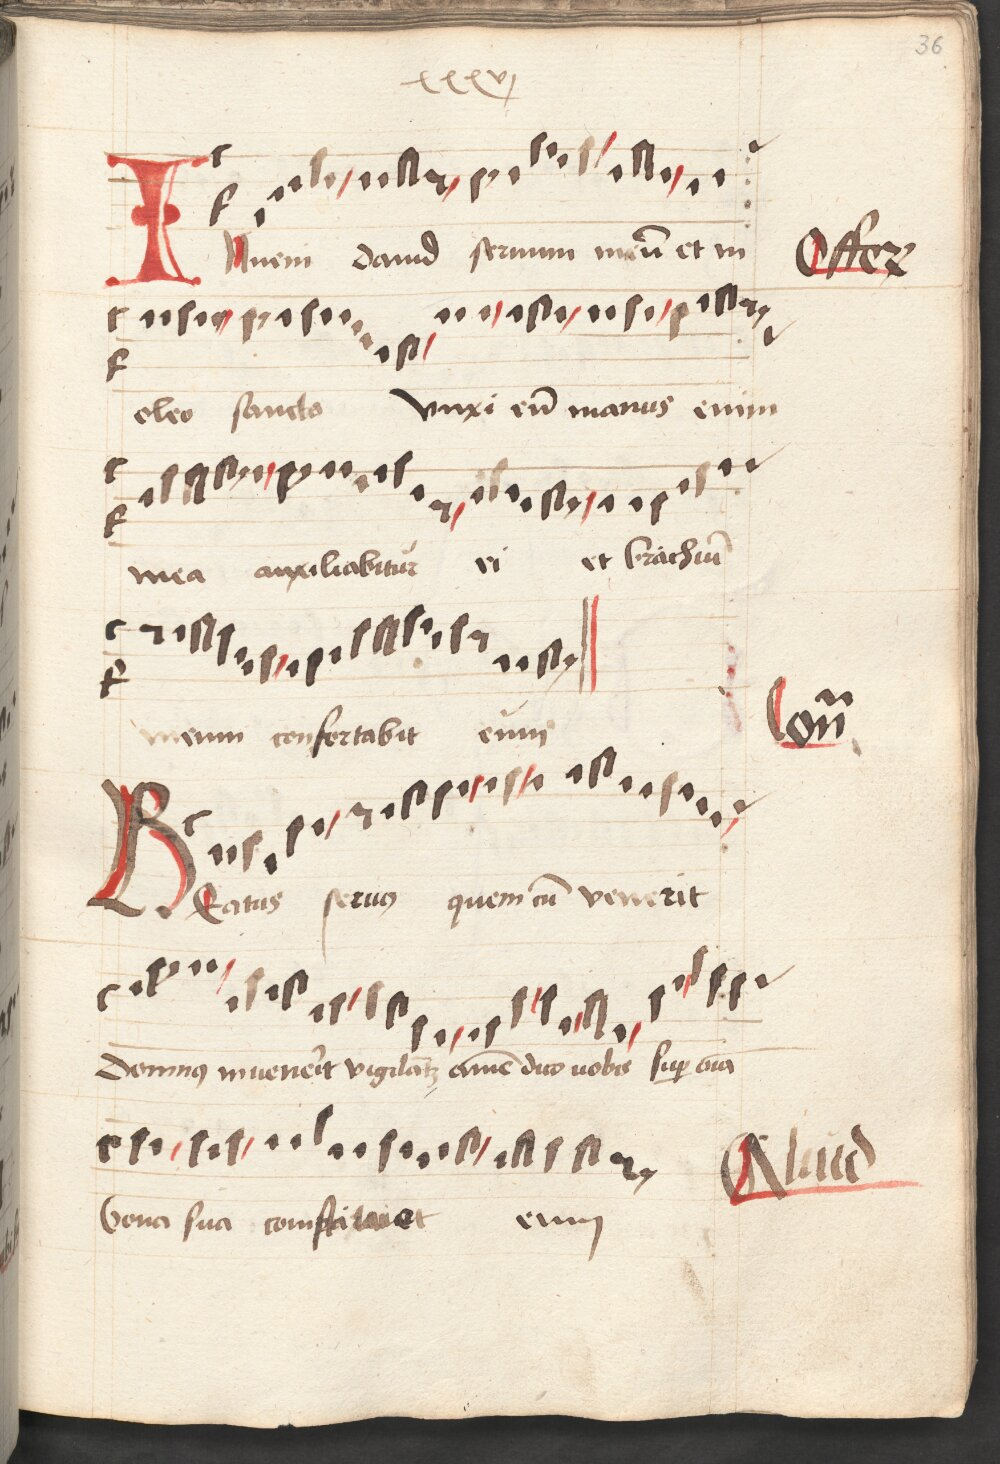 36
xxxvj
INueni dauid seruum meū et in
Offer
oleo sancto vnxi eū manus enim
mea auxiliabitur ei et brachiū
meum confortabit eum
Com̄
BEatus seruus quem cū venerit
Dominus inuenerit vigilātē amē dico vobis sup oīa
bona sua constituet eum
Aliud